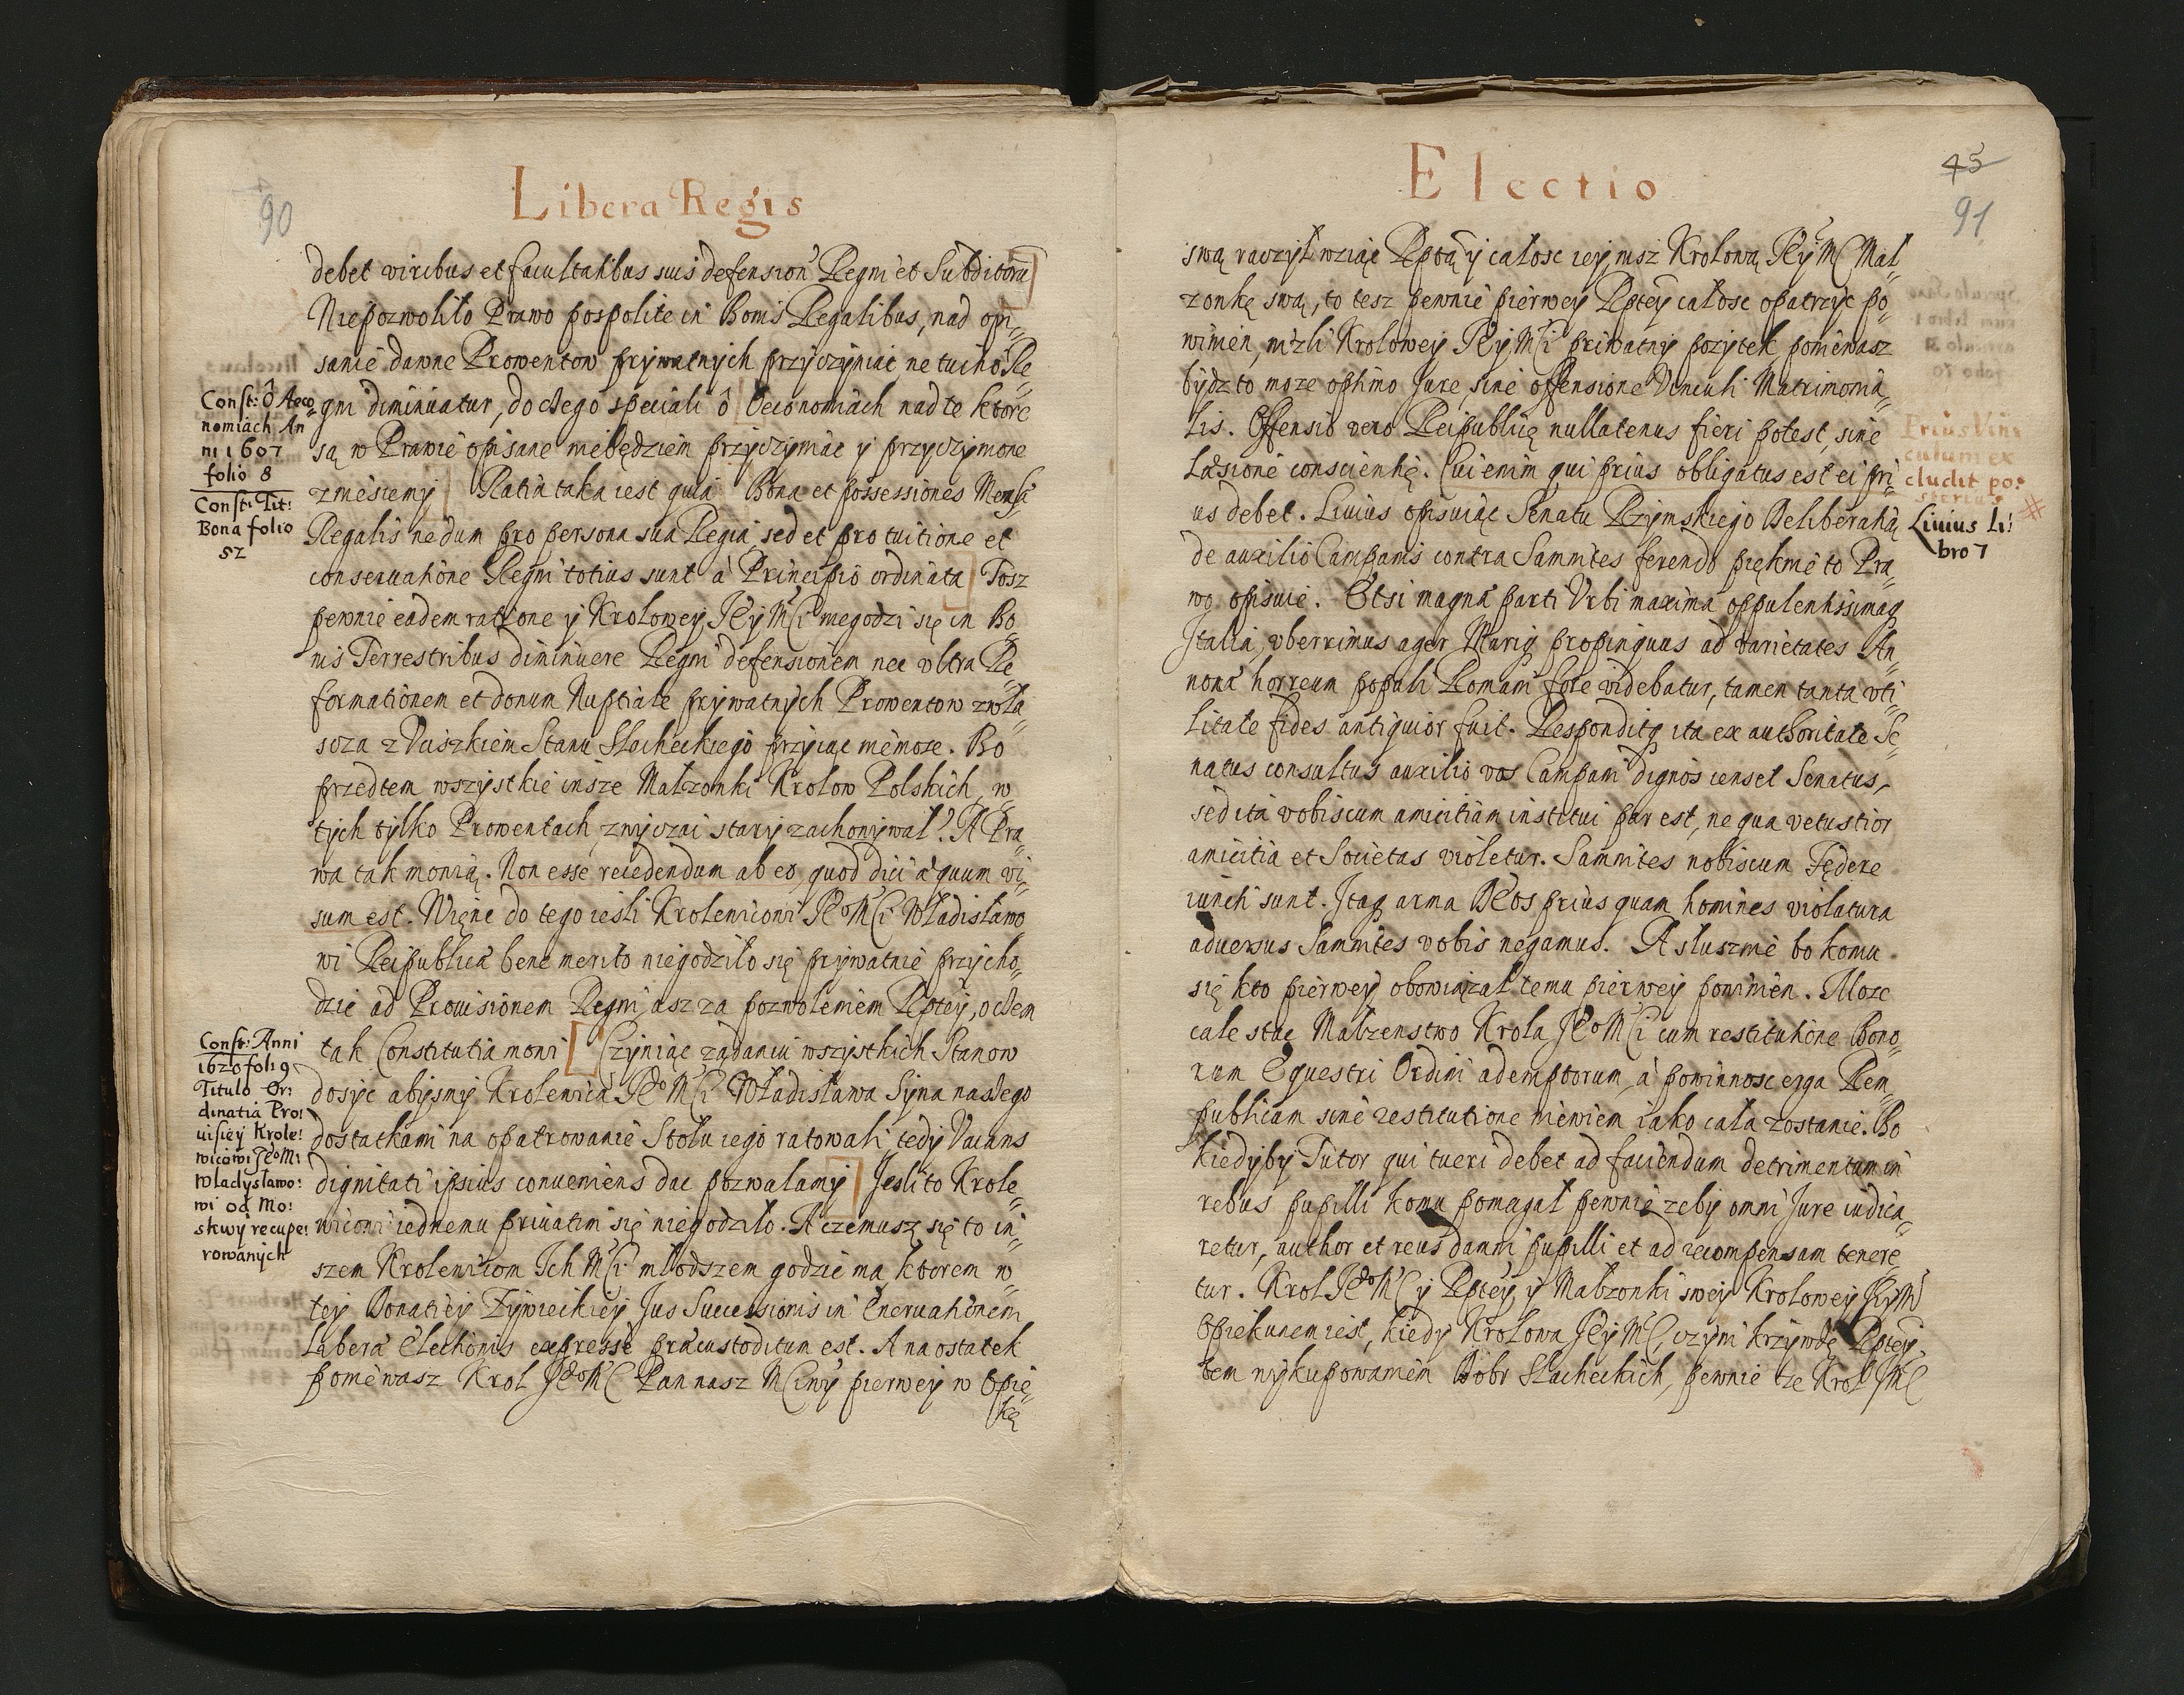 90
Libera Regis
debet viribus et facultatibus suis defension Regni et Subditoru
Niepozwoliło Prawo pospolite in Bonis Regalibus, nad opi„
sanie dawne Prowentow prywatnych przyczyniać, ne tuitio Re„
gni diminuatur, do czego speciali ô Oeconomiach nad te ktore
są w Prawie opisane niebędziem przyczyniac y przyczynione
zniesiemy Ratia taka iest quia Bona et possessiones Mensæ
Regalis nedum pro persona sua Regia, sed et pro tuitione et
conseruatione Regni totius sunt a Principio ordinata Tosz
pewnie eadem ratione y Krolowey JEy Mci niegodzi się in Bo„
nis Terrestribus diminuere Regni defensionem nec vltra Re„
formationem et donum Nuptiale prywatnych Prowentow zwła„
scza z Vciszkiem Stanu Slacheckiego przyiąc niemoze. Bo
przedtem wszystkie insze Małzonki Krolow Polskich, w
tych tylko Prowentach zwyczai stary zachowywał? A Pra„
wa tak mowią. Non esse recedendum ab eo, quod diu æquum vi„
sum est. Więnc do tego iesli Krolewicowi JEo Mci Władisławo„
wi Reipublicæ bene merito niegodziło się prywatnie przycho„
dzic ad Prouisionem Regni, asz za pozwoleniem Rptey, o czem
tak Constitutia mowi Czyniąc ządaniu wszystkich Stanow
dosyc abysmy Krolewica JEo Mci Władisława Syna naszego
dostatkami na opatrowanie Stołu iego ratowali tedy Vacans
dignitati ipsius conueniens dac pozwalamy Jesli to Krole„
wicowi iednemu priuatim się niegodziło. A czemusz się to in„
szem Krolewicom Ich Mci młodszem godzic ma, ktorem w
tey Donatiey Zywieckiey Jus Successionis in Eneruationem
Liberæ Electionis expresse præcustoditum est. A na ostatek
poniewasz Krol JEo Mc Pan nasz Mciwy pierwey w Opie„
kę
Const: Ô Aeco„
nomiach An
ni 1607
folio 8
Const: Tit:
Bona folio
52
Const: Anni
1620 foli 9
Titulo Or:
dinatia Pro:
uisiey Krole:
wicowi JEo Mi
Wladysławo:
wi od Mo:
skwy recupe:
rowanych
Electio
45
91
swą raczył wziąc Rptą y całosc iey nisz Krolową JEy Mc Mał„
zonkę swą, to tesz pewnie pierwey Rptey całosc opatrzyc po„
winien, nizli Krolowey JEy Mci priwatny pozytek poniewasz
bydz to moze optimo Jure, sine offensione Vinculi Matrimonia„
lis. Offensio vero Reipublicę nullatenus fieri potest, sine
Læsione conscientię. Cui enim qui prius obligatus est ei pri„
us debet. Liuius opisuiąc Senatu Rzymskiego Deliberatią
de auxilio Campanis contra Samnites ferendo pięknie to Pra„
wo opisuie. Etsi magnæ parti Vrbi maxima oppulentissimaq
Italiæ, vberrimus ager Mariq propinquus ad varietates An„
nonæ horreum populi Romani fore videbatur, tamen tanta vti„
litate fides antiquior fuit. Responditq ita ex authoritate Se„
natus consultus auxilio vos Campani dignos censet Senatus,
sed ita vobiscum amicitiam institui par est, ne qua vetustior
amicitia et Societas violetur. Samnites nobiscum Fędere
iuncti sunt. Itaq arma DEos prius quam homines violatura
aduersus Samnites vobis negamus. A słusznie bo komu
się kto pierwey obowiązał temu pierwey powinien. Moze
cale stac Małzenstwo Krola JEo Mci cum restitutione Bono„
rum Equestri Ordini ademptorum, a powinnosc erga Rem„
publicam sine restitutione niewiem iako cała zostanie. Bo
kiedyby Tutor qui tueri debet ad faciendum detrimentum in
rebus pupilli komu pomagał pewnie zeby omni Jure iudica„
retur, author et reus damni pupilli et ad recompensam tenere„
tur. Krol JEo Mc y Rptey y Małzonki swey Krolowey JEy M
Opiekunem iest, kiedy Krolowa JEy Mc, czyni krzywdę Rptey,
tem wykupowaniem Dobr Slacheckich, pewnie ze Krol JMc
Prius Vin:
culum ex
cludit po:
sterius
Liuius li:
bro 7